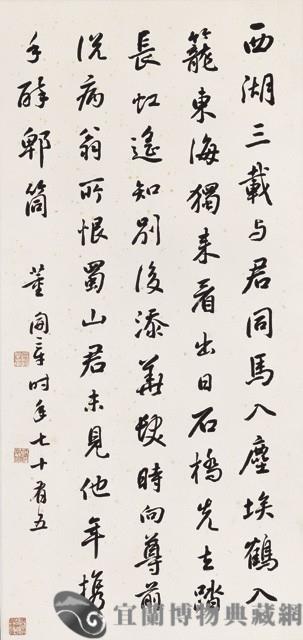 西湖三載与君同馬入塵埃鶴入
籠東海獨来看出日石橋先去踏
長虹遙知別後添華髮時向尊前
説病翁所恨蜀山君未見他年携
手醉郫筒 董開章时年七十有五
宜蘭博物典藏網